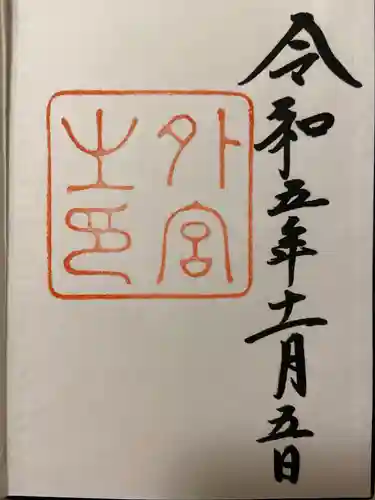 令和五年十一月五日
外宮
之印